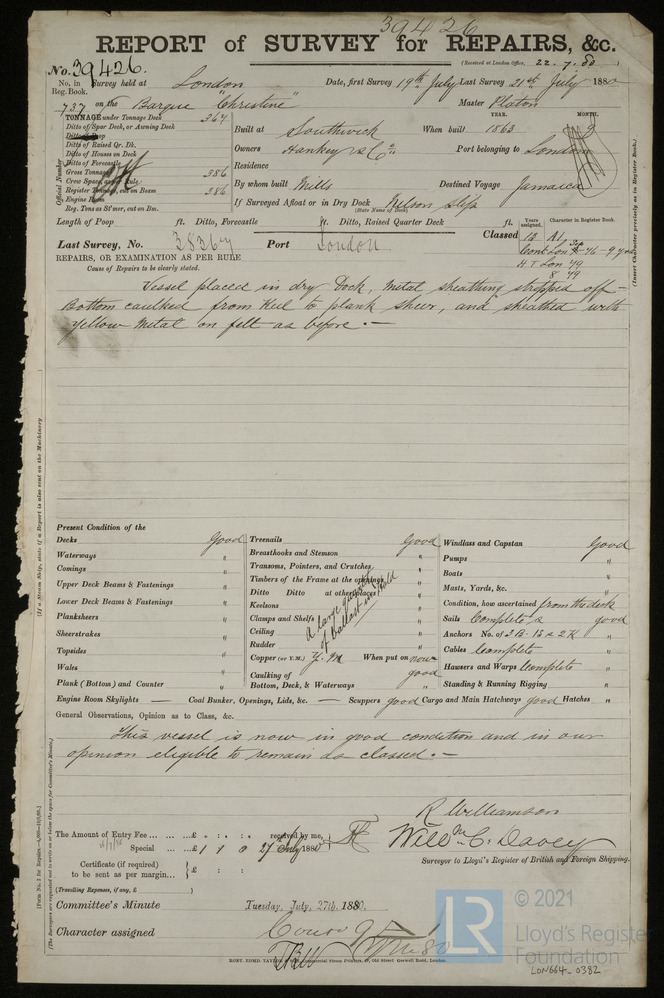 39426
REPORT of SURVEY for REPAIRS, &c.
(Received at London Office, 22.7.80)
No. 39426.
No. in Survey held at London Date, first Survey 19th July Last Survey 21st July 1880
Reg. Book.
737 on the Barque "Christine" Master Platon
TONNAGE under Tonnage Deck 364
Ditto of Spar Deck, or Awning Deck
Ditto of Poop
Ditto of Raised Qr. Dk.
Ditto of House on Deck
Ditto of Forecastle
Gross Tonnage 386
Crew Space, as per Rule:
Register Tonnage, cut on Beam 386
Engine Room
Reg. Tons as St'mer, cut on Bm.
Official Number
YEAR. MONTH.
Built at Southwick When built 1863 9
Owners Hankey & Co. Port belonging to London
Residence
By whom built Mills Destined Voyage Jamaica
If Surveyed Afloat or in Dry Dock Nelson Slip
(State Name of Dock)
Length of Poop ft. Ditto, Forecastle ft. Ditto, Raised Quarter Deck ft.
Years assigned. Character in Register Book.
Classed 12 A1
Cont Lon 76-9 yrs
H T Lon 79
8 79
(Insert Character precisely as in Register Book.)
Last Survey, No. 38367 Port London
REPAIRS, OR EXAMINATION AS PER RULE
Cause of Repairs to be clearly stated.
Vessel placed in dry Dock, metal sheathing stripped off -
Bottom caulked from Keel to plank sheer, and sheathed with
yellow metal on felt as before. -
(If a Steam Ship, state if a Report is also sent on the Machinery
Present Condition of the
Decks Good
Waterways "
Comings "
Upper Deck Beams & Fastenings "
Lower Deck Beams & Fastenings "
Planksheers "
Sheerstrakes "
Topsides "
Wales "
Plank (Bottom) and Counter "
Treenails Good
Breasthooks and Stemson "
Transoms, Pointers, and Crutches "
Timbers of the Frame at the openings "
Ditto Ditto at other places "
Keelsons "
Clamps and Shelfs "
Ceiling "
Rudder "
A large quantity
of ballast in Hold
Copper (or Y.M.) Y.M When put on now
Caulking of good
Bottom, Deck, & Waterways "
Windlass and Capstan Good
Pumps "
Boats "
Masts, Yards, &c. "
Condition, how ascertained from the deck
Sails Complete & good
Anchors No. of 3 B. 1 S & 2 K "
Cables Complete "
Hawsers and Warps Complete "
Standing & Running Rigging "
Engine Room Skylights — Coal Bunker, Openings, Lids, &c. — Scuppers good Cargo and Main Hatchways good Hatches "
General Observations, Opinion as to Class, &c.
This vessel is now in good condition and in our
opinion eligible to remain as classed. -
R Williamson
The Amount of Entry Fee ... ... £ : : received by me,
Special ... £ 1 1 0 27 July 1880
Willm C. Davey
Surveyor to Lloyd's Register of British and Foreign Shipping.
Certificate (if required)
to be sent as per margin... £ : :
(Travelling Expenses, if any, £ )
Committee's Minute Tuesday, July, 27th. 1880.
Character assigned
[Form No. 2 for Repairs.
(The Surveyors are requested not to write on or below the space for Committee's Minute.)
© 2021
Lloyd's Register
Foundation
LR
LON664-0382